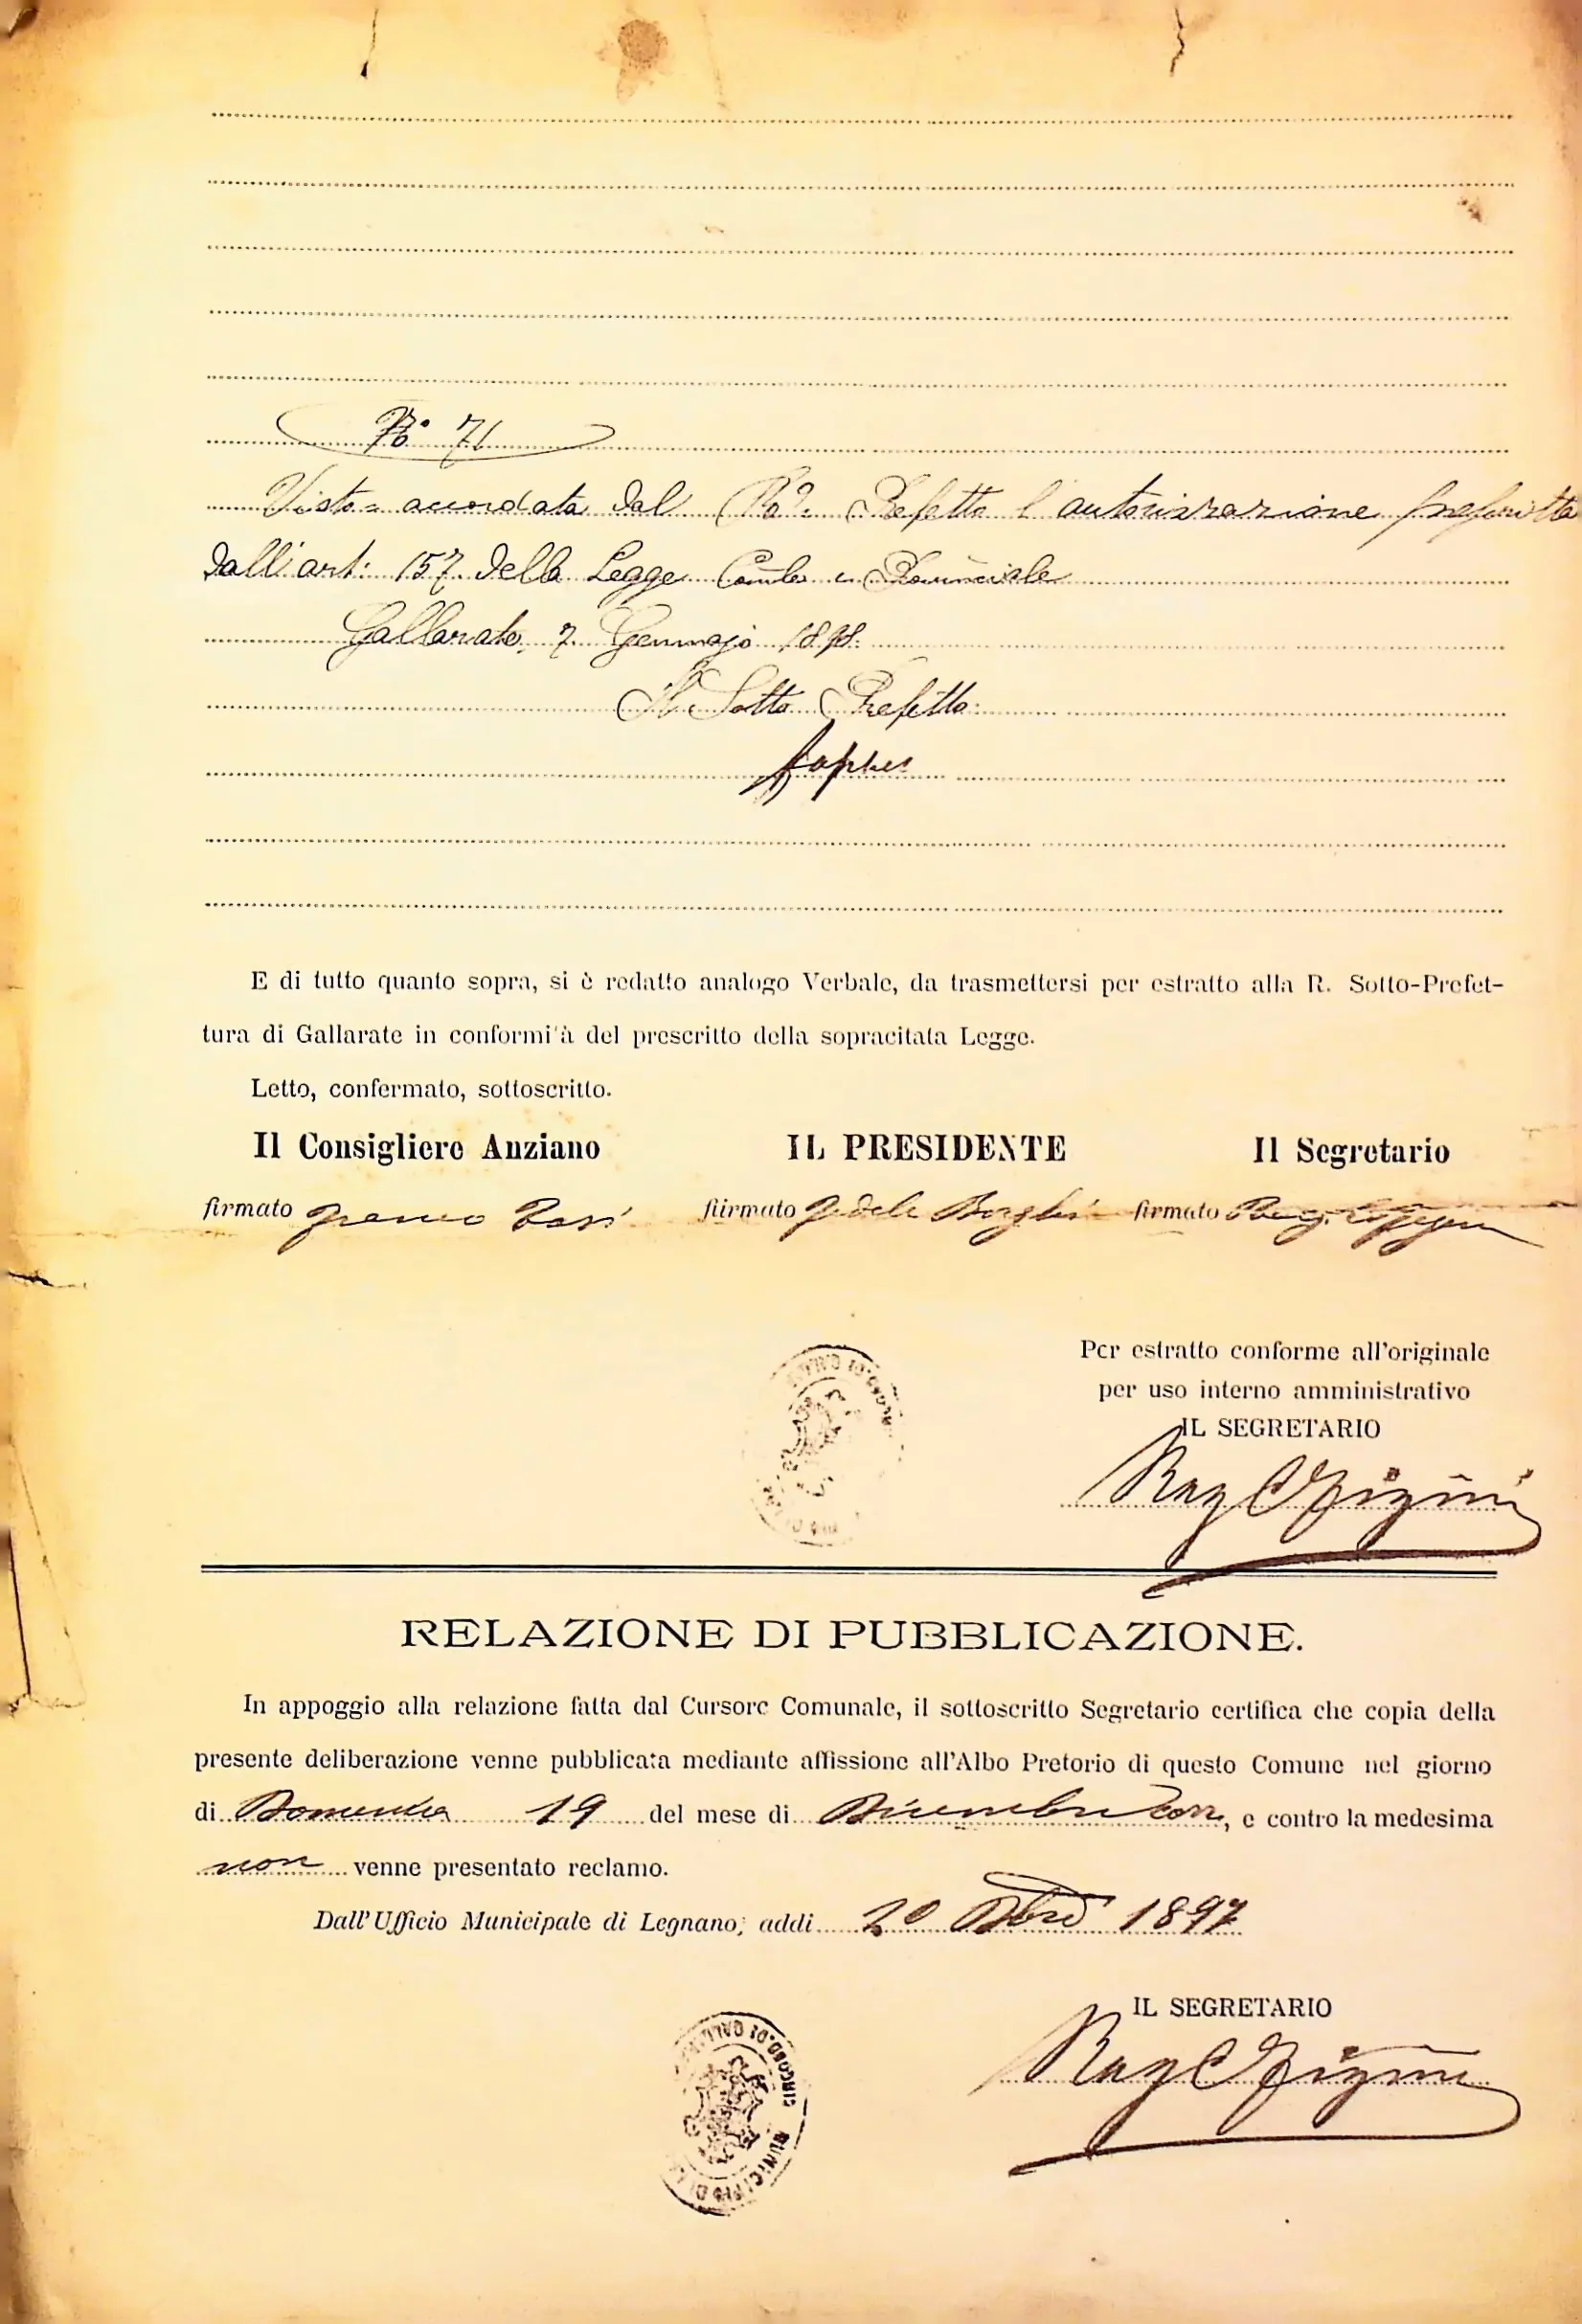 N° 71
Visto = accordata dal R°. Prefetto l'autorizzazione prescritta
dall'art. 157 della Legge Com.le e Provinciale
Gallarate, 7 Gennajo 1898.
Il Sotto Prefetto
E di tutto quanto sopra, si è redatto analogo Verbale, da trasmettersi per estratto alla R. Sotto-Prefet-
tura di Gallarate in conformità del prescritto della sopracitata Legge.
Letto, confermato, sottoscritto.
Il Consigliere Anziano IL PRESIDENTE Il Segretario
firmato fiirmato Fedele Borghi firmato
Per estratto conforme all'originale
per uso interno amministrativo
IL SEGRETARIO
RELAZIONE DI PUBBLICAZIONE.
In appoggio alla relazione fatta dal Cursore Comunale, il sottoscritto Segretario certifica che copia della
presente deliberazione venne pubblicata mediante affissione all'Albo Pretorio di questo Comune nel giorno
di Domenica 19 del mese di Dicembre corr, e contro la medesima
non venne presentato reclamo.
Dall'Ufficio Municipale di Legnano, addi 20 Dbre 1897
IL SEGRETARIO
CIRCOND. DI GALL
MUNICIPIO DI